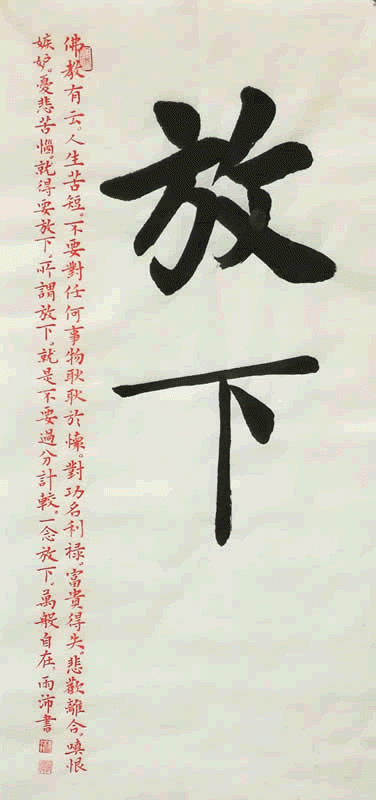 放下
佛教有云。人生苦短。不要對任何事物耿耿於懷。對功名利祿。富貴得失。悲歡離合。嗔恨
嫉妒。憂悲苦惱。就得要放下。所謂放下。就是不要過分計較。一念放下。萬般自在。雨沛書